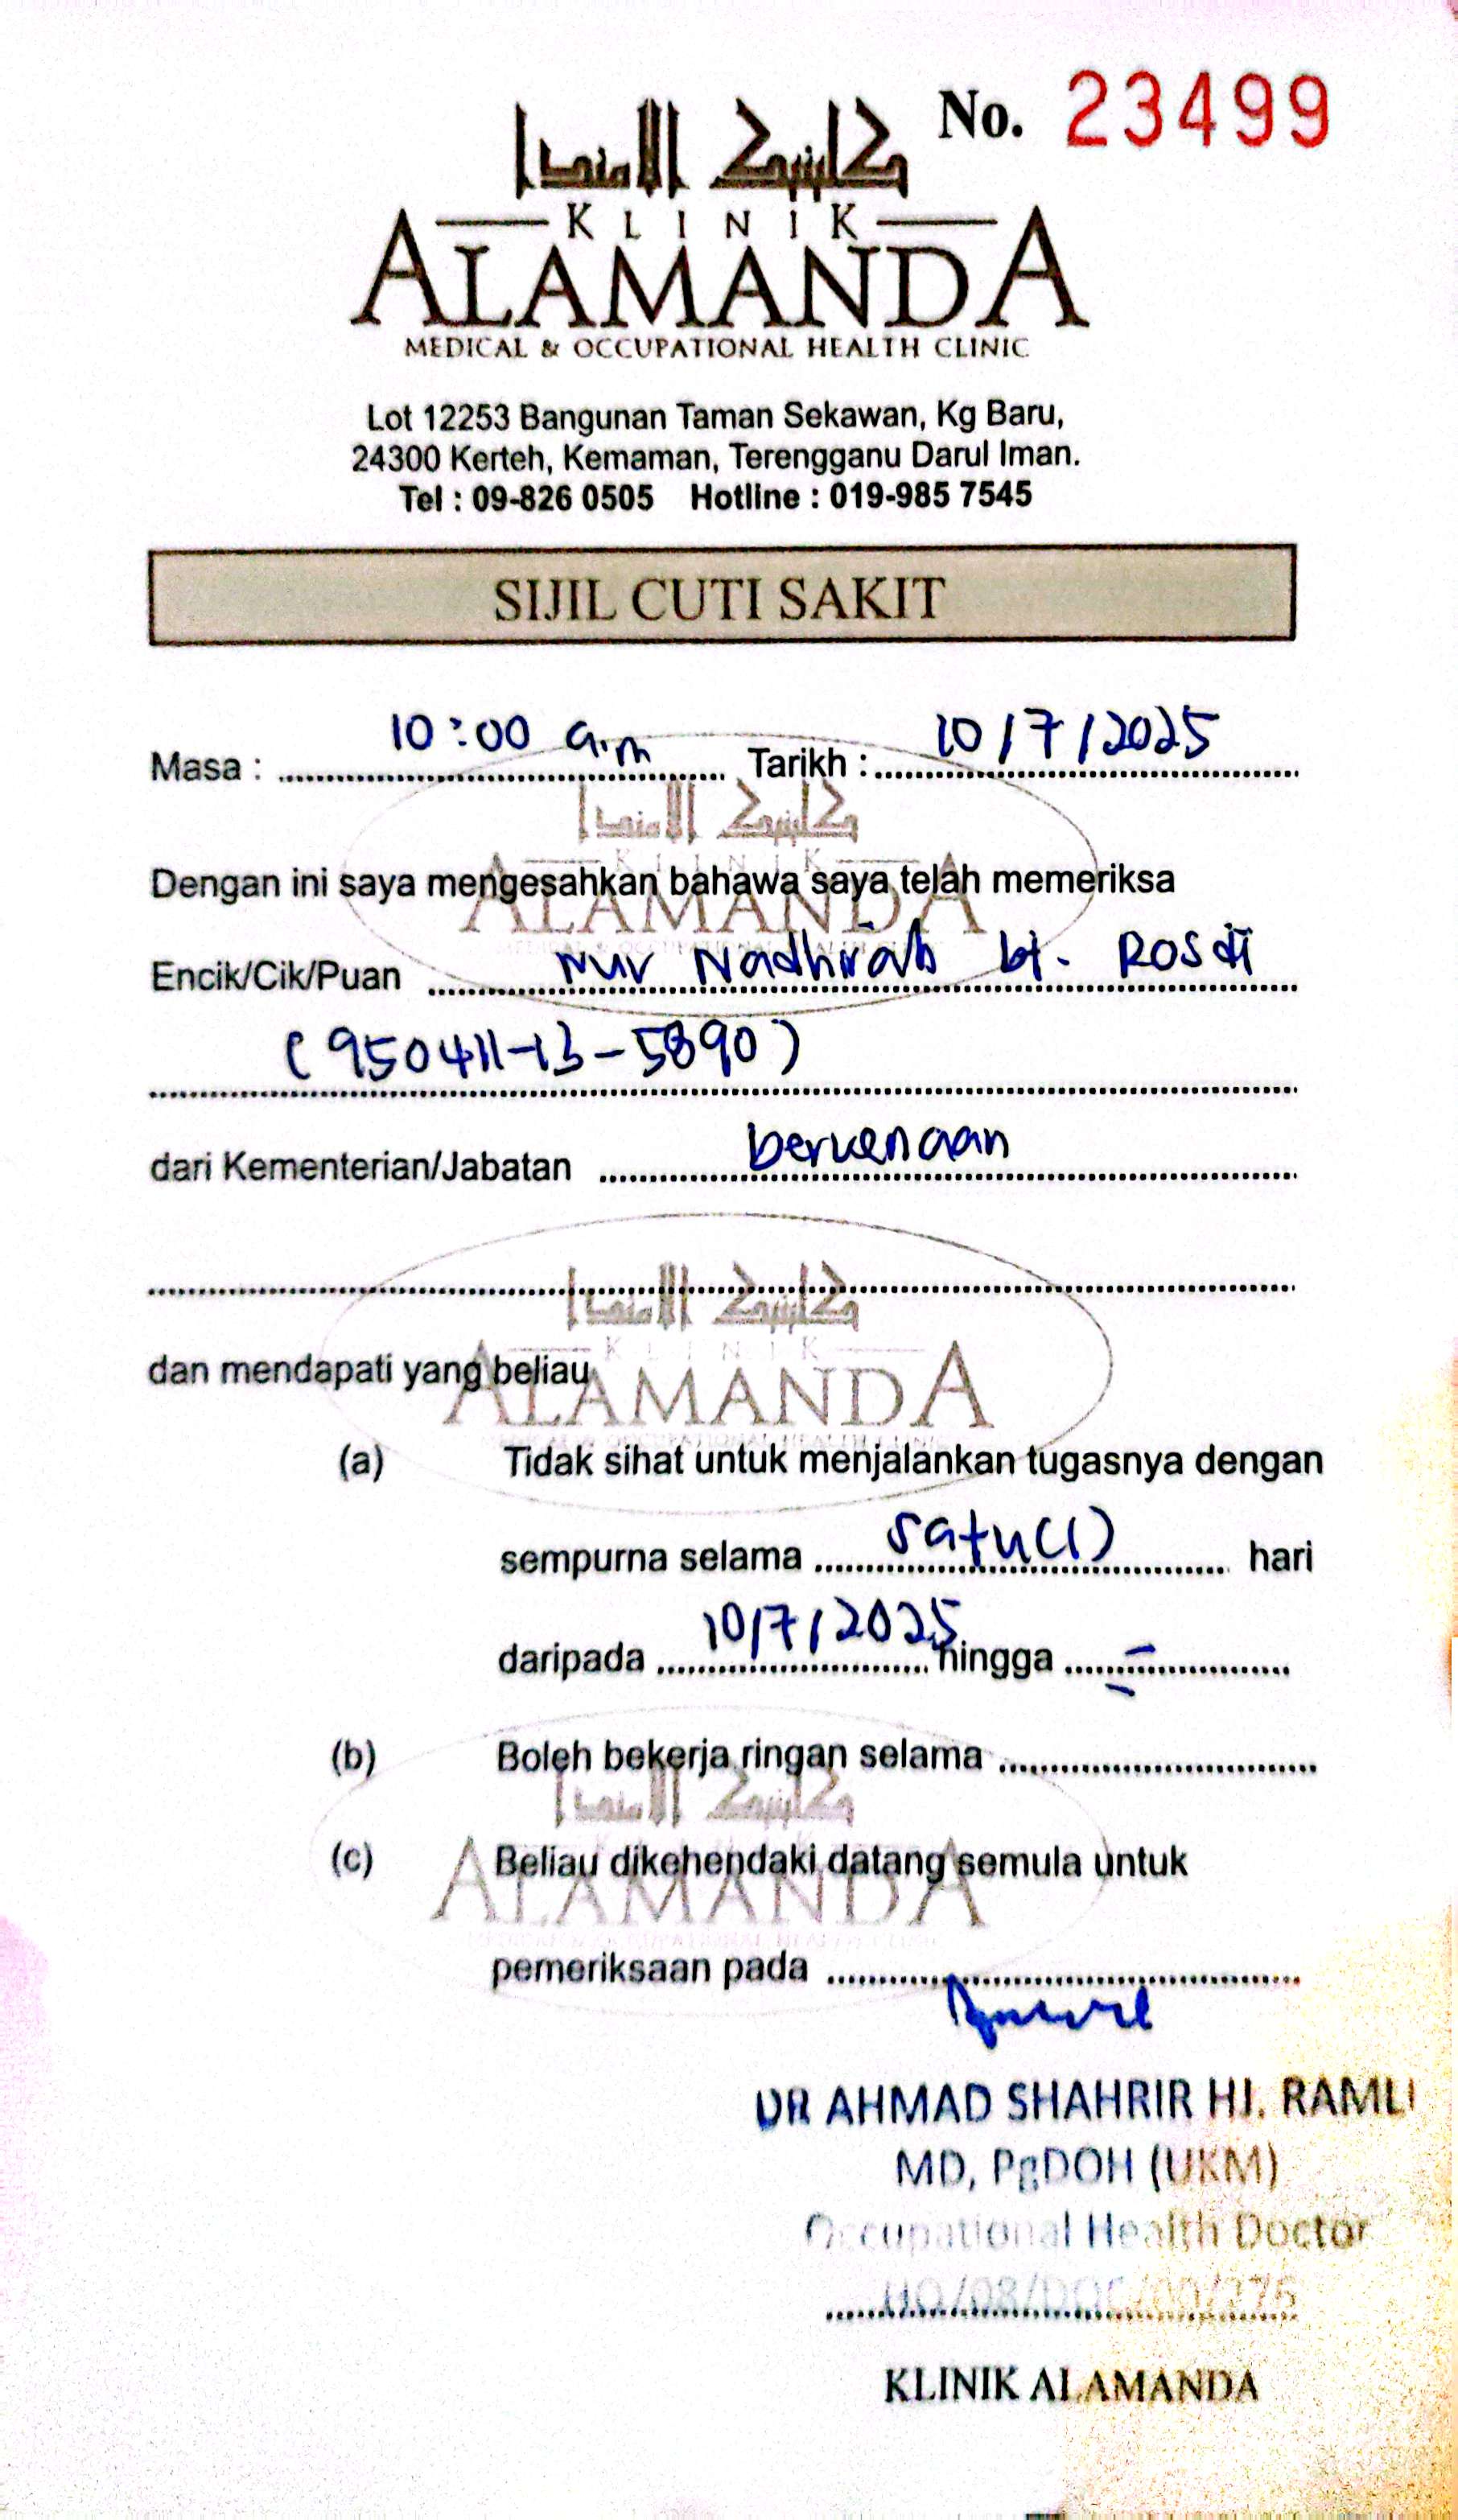 No. 23499
كلينيك الامندا
KLINIK
ALAMANDA
MEDICAL & OCCUPATIONAL HEALTH CLINIC
Lot 12253 Bangunan Taman Sekawan, Kg Baru,
24300 Kerteh, Kemaman, Terengganu Darul Iman.
Tel : 09-826 0505 Hotline : 019-985 7545
SIJIL CUTI SAKIT
Masa : 10:00 a.m Tarikh : 10/7/2025
كلينيك الامندا
KLINIK
ALAMANDA
Dengan ini saya mengesahkan bahawa saya telah memeriksa
Encik/Cik/Puan Nur Nadhirah bt. Rosdi
(950411-13-5890)
dari Kementerian/Jabatan berkenaan
كلينيك الامندا
KLINIK
ALAMANDA
dan mendapati yang beliau
(a) Tidak sihat untuk menjalankan tugasnya dengan
sempurna selama satu(1) hari
daripada 10/7/2025 hingga -
(b) Boleh bekerja ringan selama
كلينيك الامندا
ALAMANDA
(c) Beliau dikehendaki datang semula untuk
pemeriksaan pada
DR AHMAD SHAHRIR HJ. RAMLI
MD, PgDOH (UKM)
Occupational Health Doctor
HQ/08/DOC/00/276
KLINIK ALAMANDA